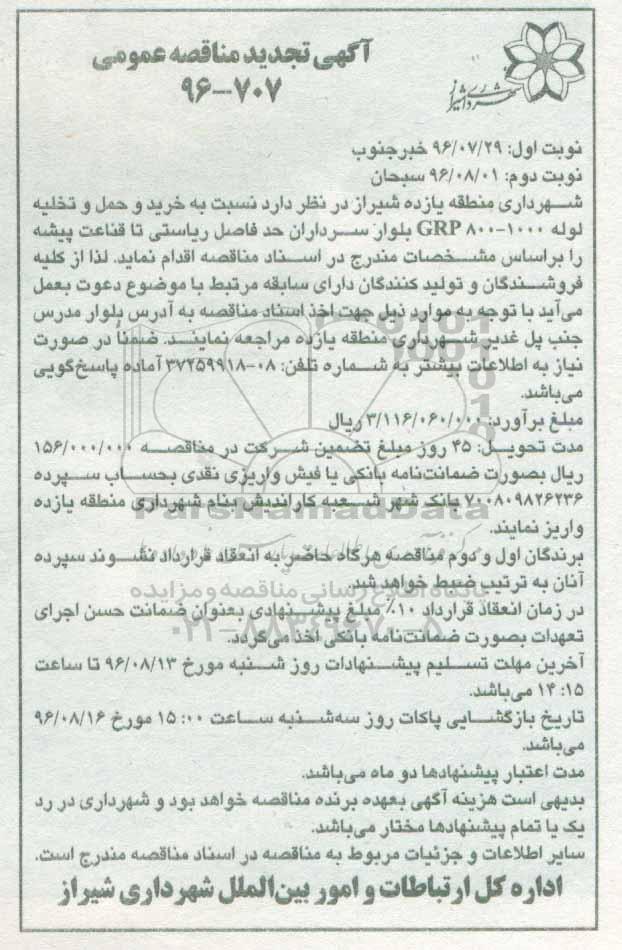 آگهی تجدید مناقصه عمومی
۹۶-۷۰۷
شهرداری شیراز
نوبت اول: ۹۶/۰۷/۲۹ خبرجنوب
نوبت دوم: ۹۶/۰۸/۰۱ سبحان
شهرداری منطقه یازده شیراز در نظر دارد نسبت به خرید و حمل و تخلیه
لوله GRP ۸۰۰-۱۰۰۰ بلوار سرداران حد فاصل ریاستی تا قناعت پیشه
را براساس مشخصات مندرج در اسناد مناقصه اقدام نماید. لذا از کلیه
فروشندگان و تولید کنندگان دارای سابقه مرتبط با موضوع دعوت بعمل
می‌آید با توجه به موارد ذیل جهت اخذ اسناد مناقصه به آدرس بلوار مدرس
جنب پل غدیر شهرداری منطقه یازده مراجعه نمایند. ضمناً در صورت
نیاز به اطلاعات بیشتر به شماره تلفن: ۰۸-۳۷۲۵۹۹۱۸ آماده پاسخ‌گویی
می‌باشد.
مبلغ برآورد: ۳/۱۱۶/۰۶۰/۰۰۰ ریال
مدت تحویل: ۴۵ روز مبلغ تضمین شرکت در مناقصه ۱۵۶/۰۰۰/۰۰۰
ریال بصورت ضمانت‌نامه بانکی یا فیش واریزی نقدی بحساب سپرده
۷۰۰۸۰۹۸۲۶۲۳۶ بانک شهر شعبه کاراندیش بنام شهرداری منطقه یازده
واریز نمایند.
برندگان اول و دوم مناقصه هرگاه حاضر به انعقاد قرارداد نشوند سپرده
آنان به ترتیب ضبط خواهد شد.
در زمان انعقاد قرارداد ۱۰٪ مبلغ پیشنهادی بعنوان ضمانت حسن اجرای
تعهدات بصورت ضمانت‌نامه بانکی اخذ می‌گردد.
آخرین مهلت تسلیم پیشنهادات روز شنبه مورخ ۹۶/۰۸/۱۳ تا ساعت
۱۴:۱۵ می‌باشد.
تاریخ بازگشایی پاکات روز سه‌شنبه ساعت ۱۵:۰۰ مورخ ۹۶/۰۸/۱۶
می‌باشد.
مدت اعتبار پیشنهادها دو ماه می‌باشد.
بدیهی است هزینه آگهی بعهده برنده مناقصه خواهد بود و شهرداری در رد
یک یا تمام پیشنهادها مختار می‌باشد.
سایر اطلاعات و جزئیات مربوط به مناقصه در اسناد مناقصه مندرج است.
اداره کل ارتباطات و امور بین‌الملل شهرداری شیراز
ParsNamadData
پایگاه اطلاع رسانی مناقصه و مزایده
۰۲۱-۸۸۳۴۹۶۷۰-۵